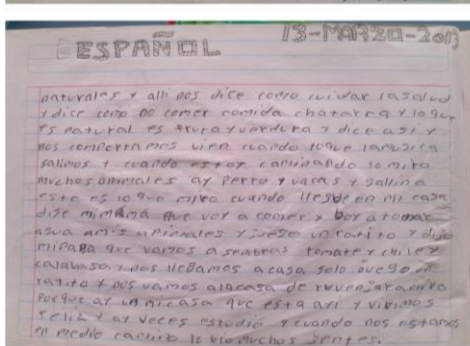 ESPAÑOL
13-MARZO-2013
naturales y alli nos dice como cuidar la salud
y dice como no comer comida chatarra y lo que
es natural es fruta y verdura y dice asi y
nos comportamos vien cuando toque la musica
salimos y cuando estoy caminando lo miro
muchos animales ay perro y vacas y gallina
esto es lo que miro cuando llesde en mi casa
dise mi mamá que voy a comer y boy a tomar
agua a mis animales y juego un ratito y dijo
mi papa que vamos a sembrar tomate y chile y
calabasa y nos llegamos a casa solo juego un
ratito y nos vamos a la casa de
porque ay un mi casa que esta ayi y vivimos
feliz y ay veces estudio y cuando nos estamos
en medio camino lo bio muchos jentes.